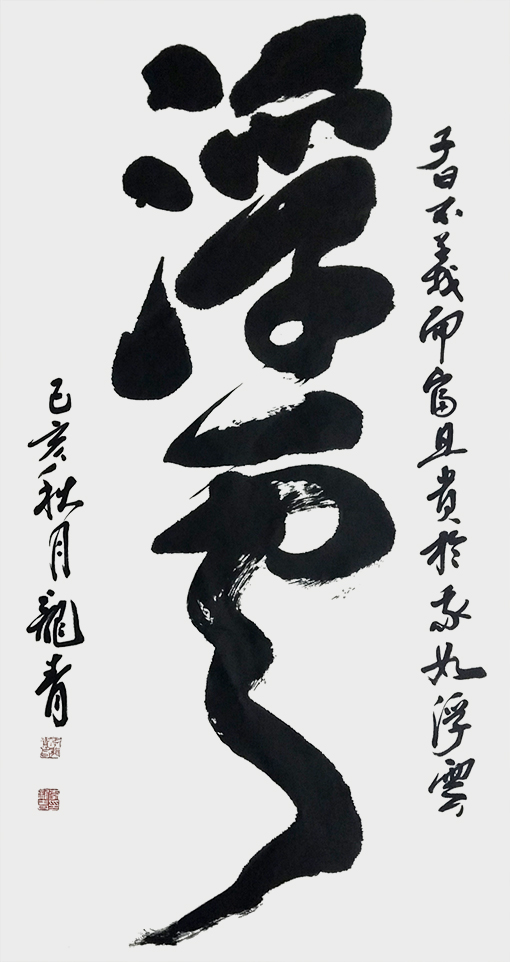 子曰不義而富且貴於我如浮雲
浮雲
己亥秋月龍青